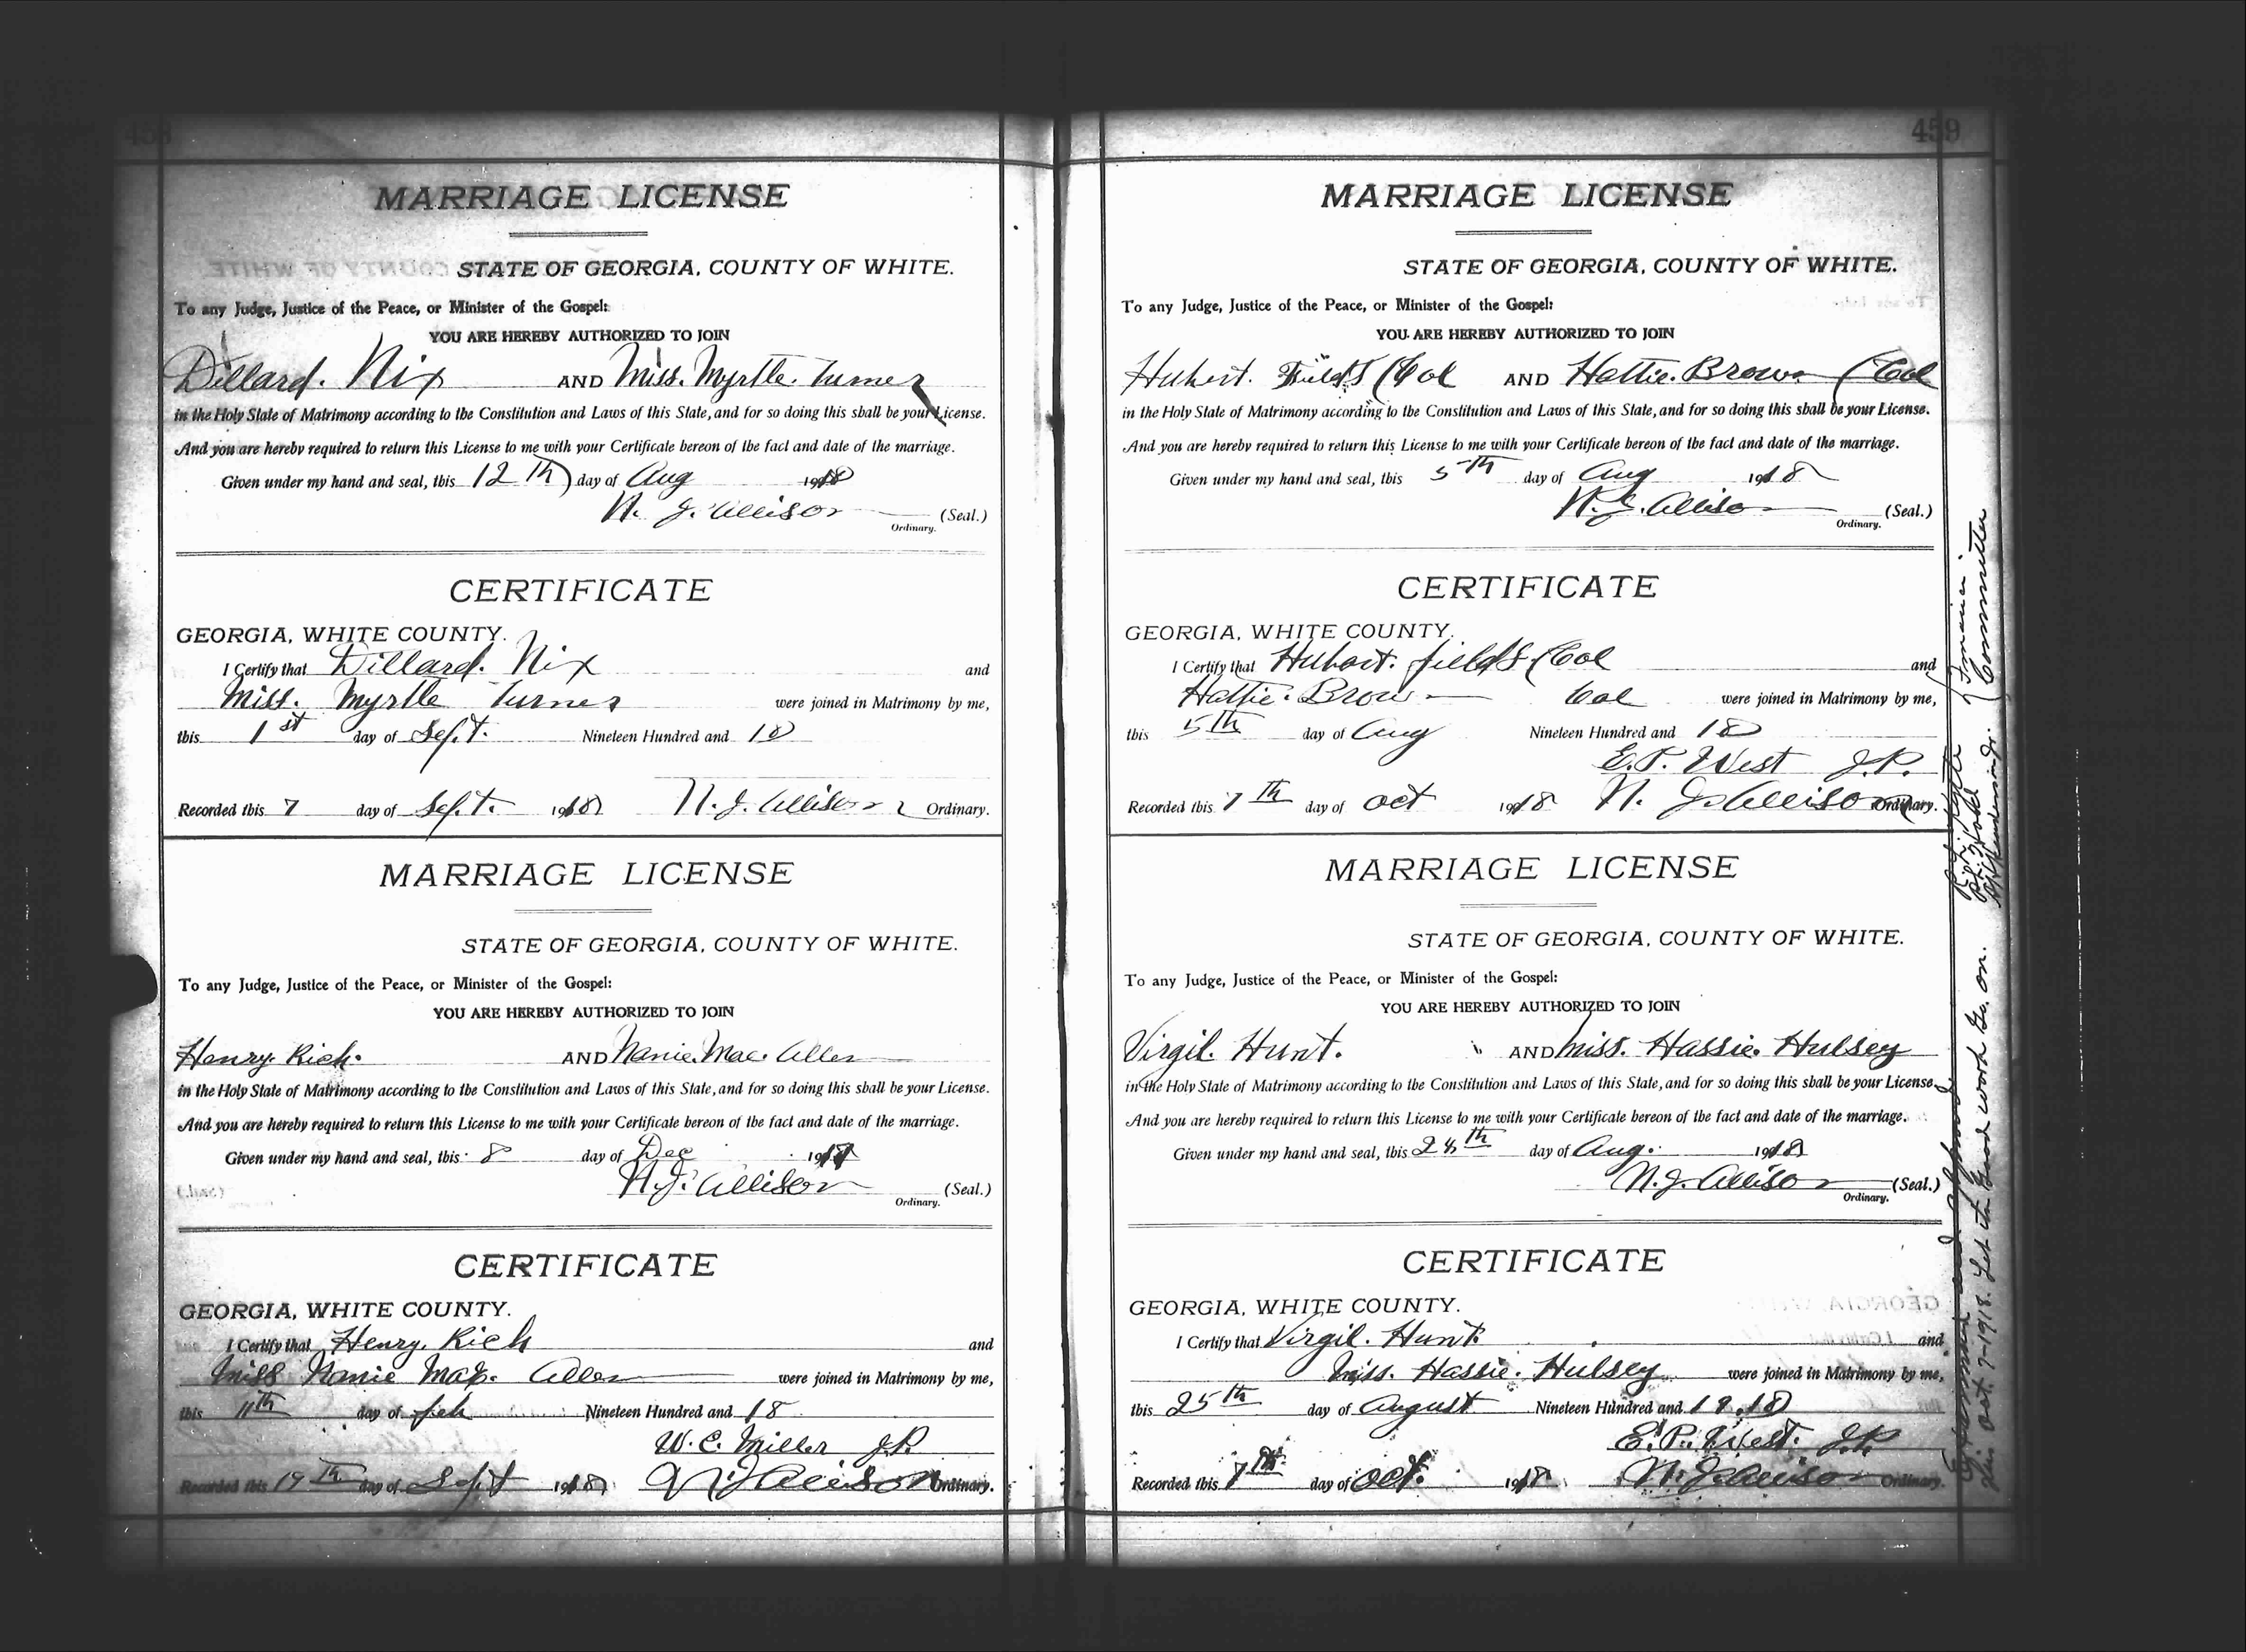 458
MARRIAGE LICENSE
STATE OF GEORGIA, COUNTY OF WHITE.
To any Judge, Justice of the Peace, or Minister of the Gospel:
YOU ARE HEREBY AUTHORIZED TO JOIN
Dillard. Nix AND Miss. Myrtle. Turner
in the Holy State of Matrimony according to the Constitution and Laws of this State, and for so doing this shall be your License.
And you are hereby required to return this License to me with your Certificate hereon of the fact and date of the marriage.
Given under my hand and seal, this 12th day of Aug 1918
N. J. Allison (Seal.)
Ordinary.
CERTIFICATE
GEORGIA, WHITE COUNTY.
I Certify that Dillard. Nix and
Miss. Myrtle Turner were joined in Matrimony by me,
this 1st day of Sept. Nineteen Hundred and 18
Recorded this 7 day of Sept. 1918 N. J. Allison Ordinary.
MARRIAGE LICENSE
STATE OF GEORGIA, COUNTY OF WHITE.
To any Judge, Justice of the Peace, or Minister of the Gospel:
YOU ARE HEREBY AUTHORIZED TO JOIN
Henry. Rich. AND Nanie. Mae. Allen
in the Holy State of Matrimony according to the Constitution and Laws of this State, and for so doing this shall be your License.
And you are hereby required to return this License to me with your Certificate hereon of the fact and date of the marriage.
Given under my hand and seal, this 8 day of Dec 1917
N. J. Allison (Seal.)
Ordinary.
CERTIFICATE
GEORGIA, WHITE COUNTY.
I Certify that Henry. Rich and
Miss Nanie Mae. Allen were joined in Matrimony by me,
this 11th day of feb Nineteen Hundred and 18
W. C. Miller J.P.
Recorded this 19th day of Sept 1918 N. J. Allison Ordinary.
459
MARRIAGE LICENSE
STATE OF GEORGIA, COUNTY OF WHITE.
To any Judge, Justice of the Peace, or Minister of the Gospel:
YOU ARE HEREBY AUTHORIZED TO JOIN
Hubert. Fields (Col AND Hattie. Brown (Col
in the Holy State of Matrimony according to the Constitution and Laws of this State, and for so doing this shall be your License.
And you are hereby required to return this License to me with your Certificate hereon of the fact and date of the marriage.
Given under my hand and seal, this 5th day of Aug 1918
N. J. Allison (Seal.)
Ordinary.
CERTIFICATE
GEORGIA, WHITE COUNTY.
I Certify that Hubert. fields (Col and
Hattie. Brown Col were joined in Matrimony by me,
this 5th day of Aug Nineteen Hundred and 18
E. P. West J.P.
Recorded this 7th day of oct 1918 N. J. Allison Ordinary.
MARRIAGE LICENSE
STATE OF GEORGIA, COUNTY OF WHITE.
To any Judge, Justice of the Peace, or Minister of the Gospel:
YOU ARE HEREBY AUTHORIZED TO JOIN
Virgil. Hunt. AND Miss. Hassie. Hulsey
in the Holy State of Matrimony according to the Constitution and Laws of this State, and for so doing this shall be your License.
And you are hereby required to return this License to me with your Certificate hereon of the fact and date of the marriage.
Given under my hand and seal, this day of Aug. 1918
N. J. Allison (Seal.)
Ordinary.
CERTIFICATE
GEORGIA, WHITE COUNTY.
I Certify that Virgil. Hunt. and
Miss. Hassie. Hulsey were joined in Matrimony by me,
this 25th day of August Nineteen Hundred and 1918
E. P. West. J.P.
Recorded this 7th day of oct. 1918 N. J. Allison Ordinary.
Examined and approved
this Oct. 7-1918. Let the Good work Go on.
Committee